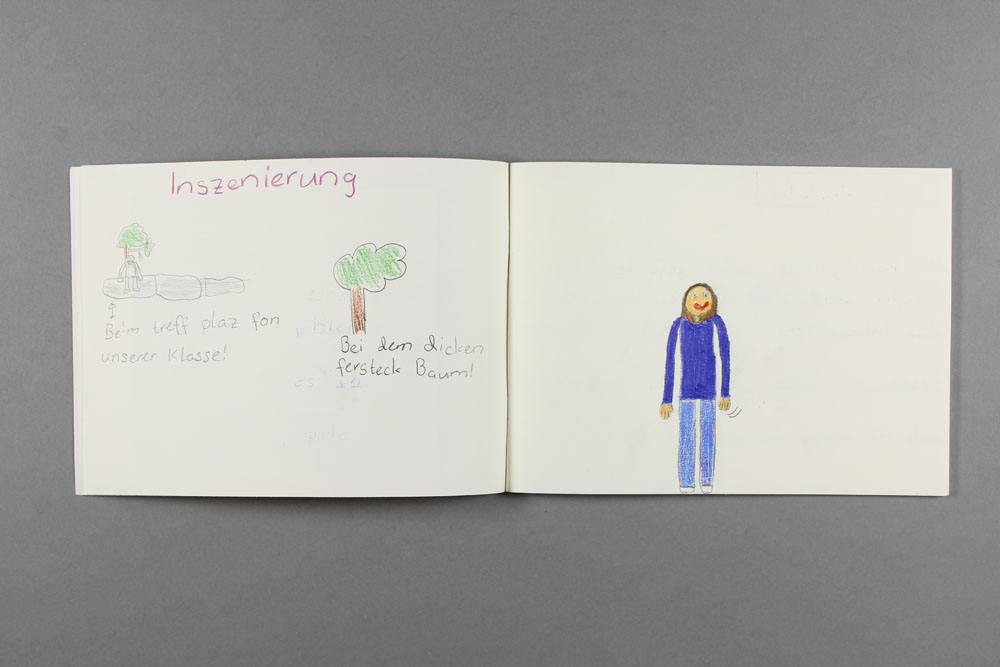 Inszenierung
Beim treff plaz fon
unserer Klasse!
Bei dem dicken
fersteck Baum!